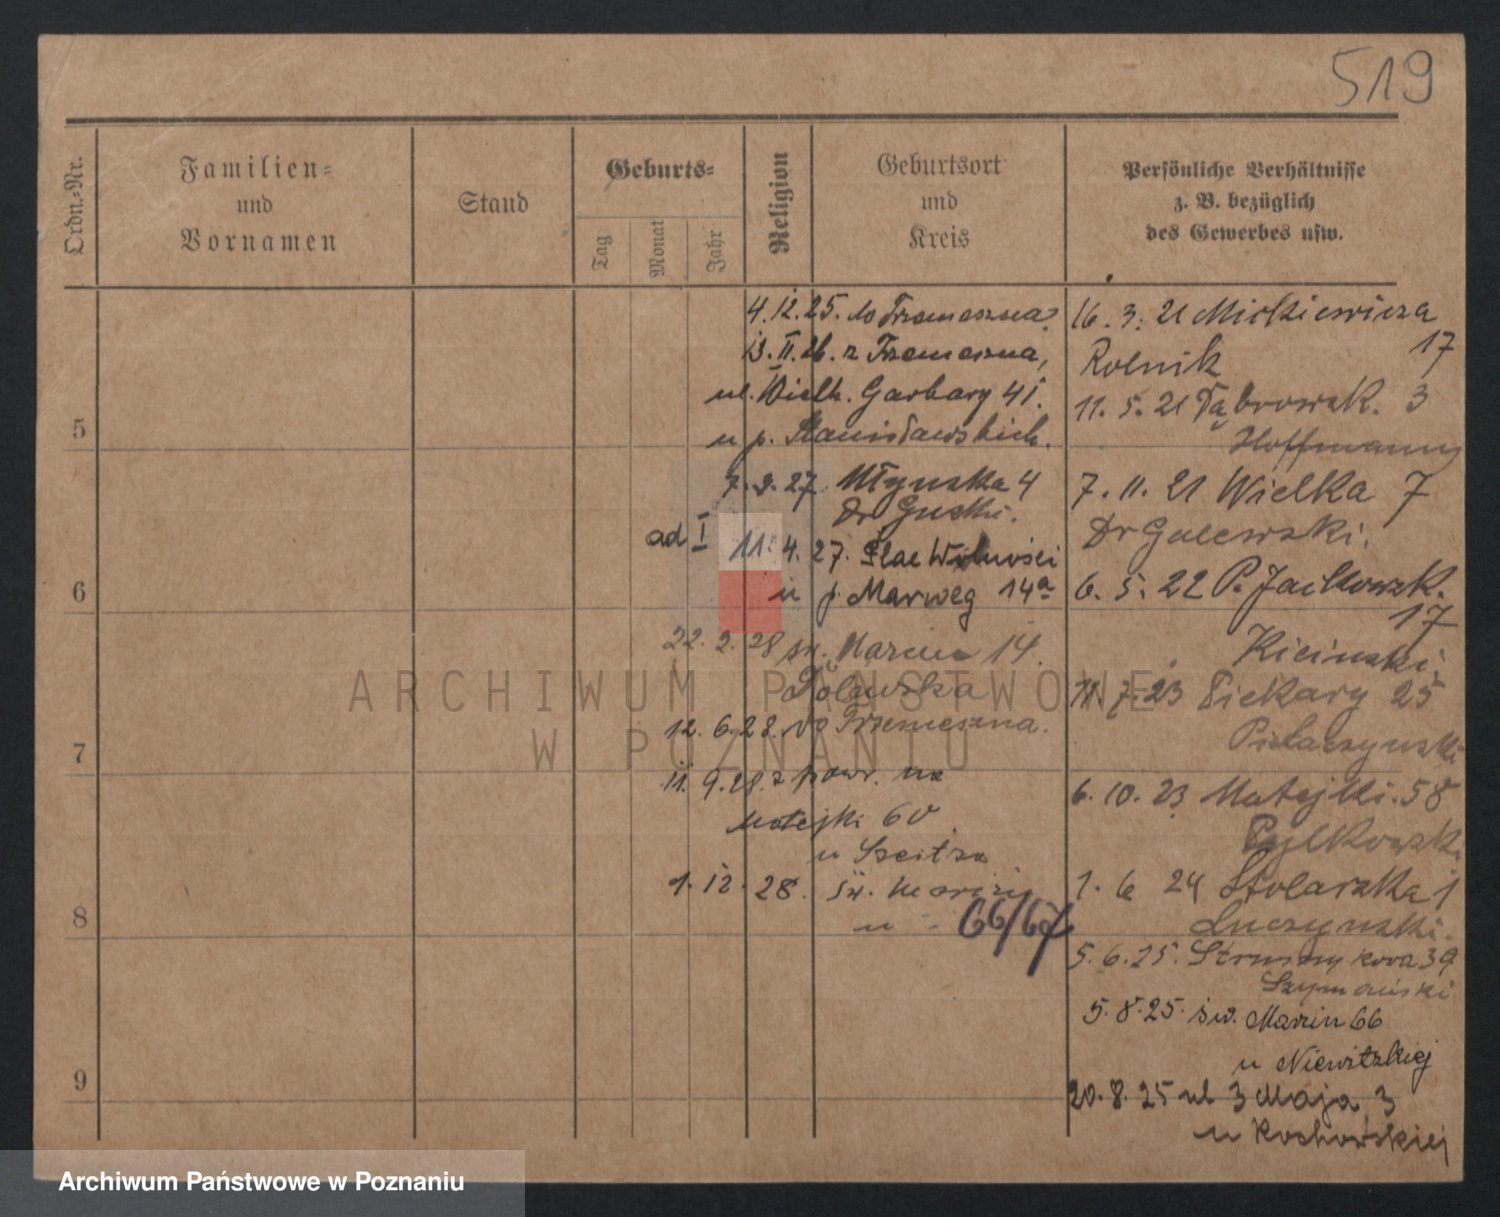 519
Ordn.-Nr.
Familien-
und
Vornamen
Stand
Geburts-
Tag
Monat
Jahr
Religion
Geburtsort
und
Kreis
Persönliche Verhältnisse
z. B. bezüglich
des Gewerbes usw.
5
6
7
8
9
4.12.25. do Trzemeszna
13.II.26. z Trzemeszna,
ul. Wielk. Garbary 41.
u p. Stanisławskich.
7.9.27. Młynska 4
Dr
ad I 11.4.27. Plac Wolności
u p. Marweg 14a
22.2.28 św. Marcin 14.
12.6.28. do Trzemeszna.
11.9.28. z powr. na
Matejki 60
u
1.12.28. św.
u 66/67
16.3.21 Mickiewicza
17
Rolnik
11.5.21 Dąbrowsk. 3
Hoffmann
7.11.21 Wielka 7
Dr Galewski.
6.5.22 P. Jackowsk.
17
Kicinski.
11.7.23 Piekary 25
6.10.23 Matejki. 58
Pylkowski
1.6 24 Stolarska 1
Luczynski.
5.6.25. 39
Szymański
5.8.25. św. Marcin 66
u Niewitzkiej
20.8.25 ul 3 Maja 3
u Kochowskiej
ARCHIWUM PAŃSTWOWE
W POZNANIU
Archiwum Państwowe w Poznaniu